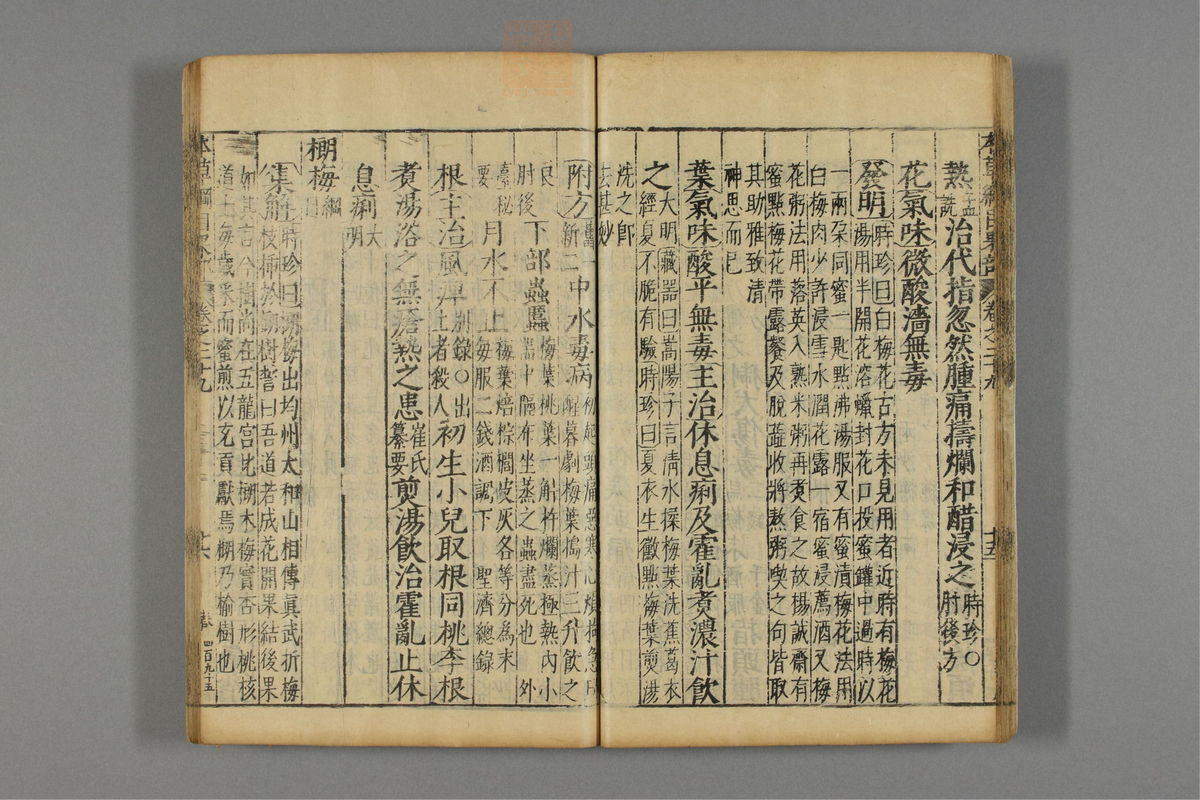 本草綱目果部 卷之二十九 十五
熱孟詵治代指忽然腫痛擣爛和醋浸之時珍○肘後方
花氣味微酸濇無毒
發明時珍曰白梅花古方未見用者近時有梅花
湯用半開花溶蠟封花口投蜜罐中過時以
一兩朵同蜜一匙點沸湯服又有蜜漬梅花法用
白梅肉少許浸雪水潤花露一宿蜜浸薦酒又梅
花粥法用落英入熟米粥再煮食之故楊誠齋有
蜜點梅花帶露餐及脫蕊收將熬粥喫之句皆取
其助雅致清
神思而已
葉氣味酸平無毒主治休息痢及霍亂煮濃汁飲
之大明藏器曰嵩陽子言清水揉梅葉洗蕉葛衣
經夏不脆有驗時珍曰夏衣生黴點梅葉煎湯
洗之即
去甚妙
附方舊一新二中水毒病初起頭痛惡寒心煩拘急旦
醒暮劇梅葉搗汁三升飲之
良肘後下部蟲䘌梅葉桃葉一斛杵爛蒸極熱內小
器中隔布坐蒸之蟲盡死也外
臺秘要月水不止梅葉焙椶櫚皮灰各等分為末
每服二錢酒調下聖濟總錄
根主治風痹別錄○出土者殺人初生小兒取根同桃李根
煮湯浴之無瘡熱之患崔氏纂要煎湯飲治霍亂止休
息痢大明
榔梅綱目
集解時珍曰榔梅出均州太和山相傳眞武折梅
枝插於榔樹誓曰吾道若成花開果結後果
如其言今樹尚在五龍宮北榔木梅實杏形桃核
道士每歲采而蜜煎以充貢獻焉榔乃榆樹也
本草綱目果部 卷之二十九 十六 春 四百九十五